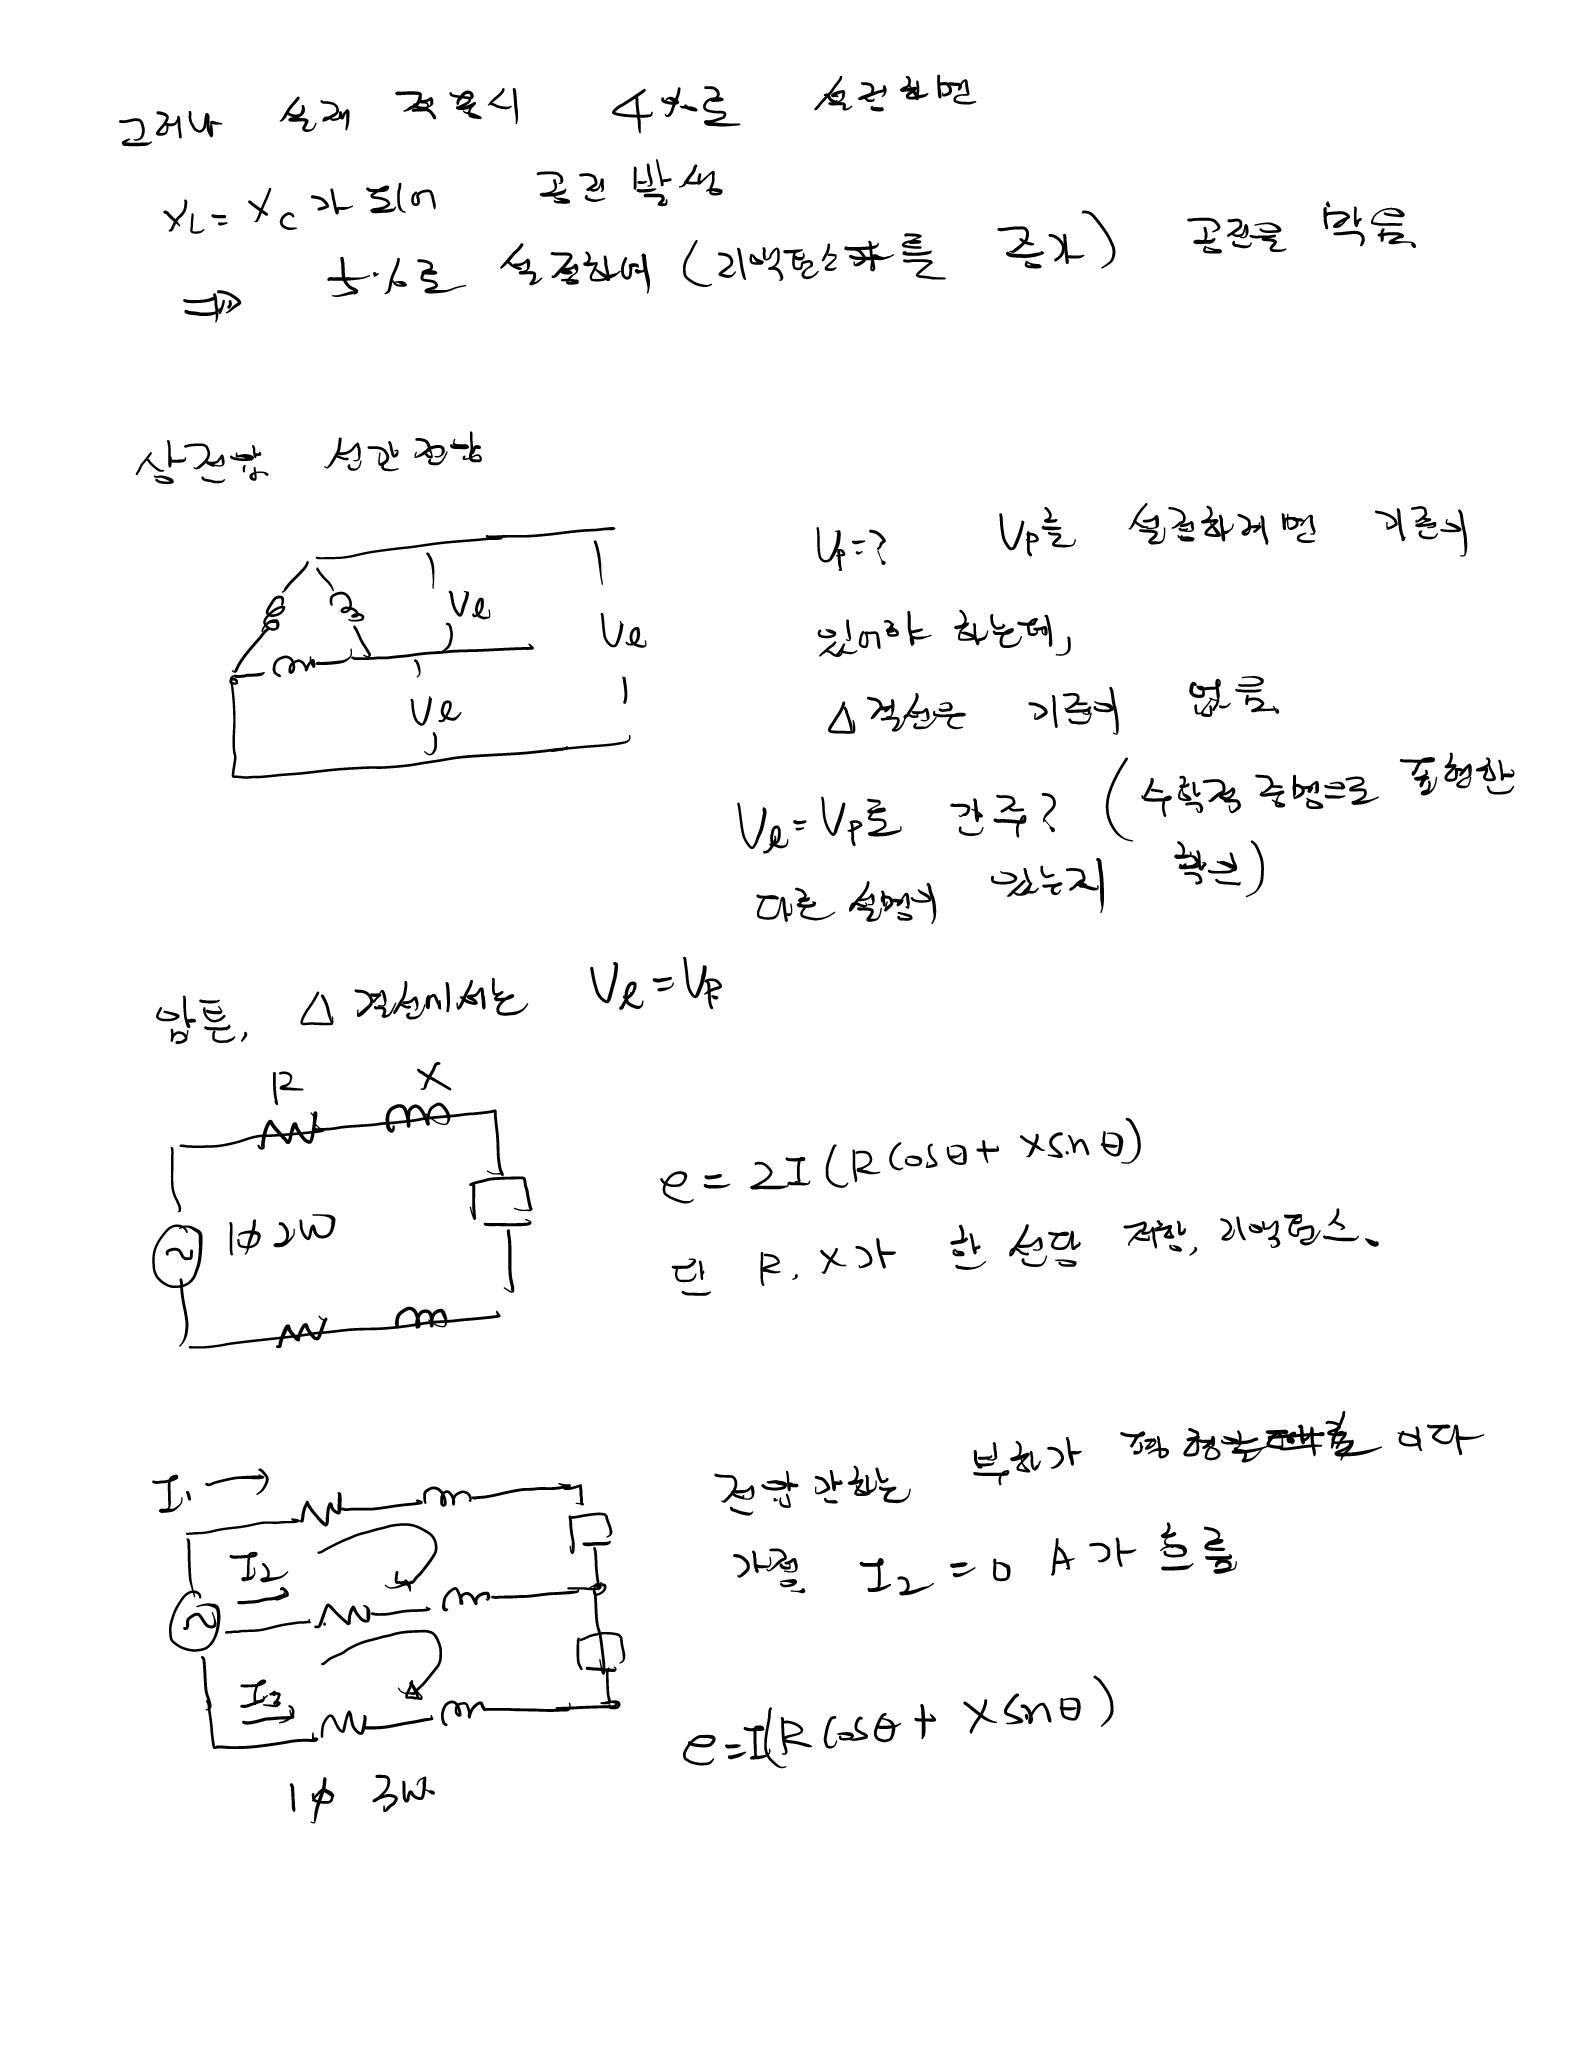 그러나 실제 적용시 4%로 설정하면
XL = XC가 되어 공진 발생
⇒ 5~6로 설정하여 (리액턴스를 증가) 공진을 막음
상전압 선간전압
Vp=? Vp를 설정하려면 기준이
있어야 하는데,
Vl
Vl
Vl
△결선은 기준이 없음.
Vl = Vp로 간주? (수학적 증명으로 표현한
다른 설명이 있는지 확인)
암튼, △결선에서는 Vl = VP
R X
e = 2I (R cosθ + X sinθ)
1φ2W
단 R, X가 한 선당 저항, 리액턴스.
I1 →
전압강하는 부하가 평형 이다
I2
가정. I2 = 0 A가 흐름
I3
e = I(R cosθ + X sinθ)
1φ 3W